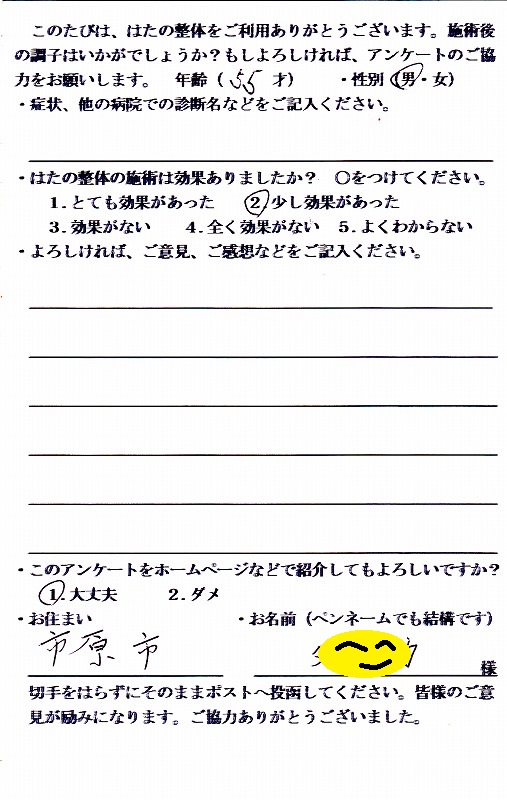 このたびは、はたの整体をご利用ありがとうございます。施術後
の調子はいかがでしょうか？もしよろしければ、アンケートのご協
力をお願いします。 年齢（ 55 才） ・性別（男・女）
・症状、他の病院での診断名などをご記入ください。
・はたの整体の施術は効果ありましたか？ 〇をつけてください。
1．とても効果があった ②少し効果があった
3．効果がない 4．全く効果がない 5．よくわからない
・よろしければ、ご意見、ご感想などをご記入ください。
・このアンケートをホームページなどで紹介してもよろしいですか？
①．大丈夫 2．ダメ
・お住まい ・お名前（ペンネームでも結構です）
市原市 様
切手をはらずにそのままポストへ投函してください。皆様のご意
見が励みになります。ご協力ありがとうございました。